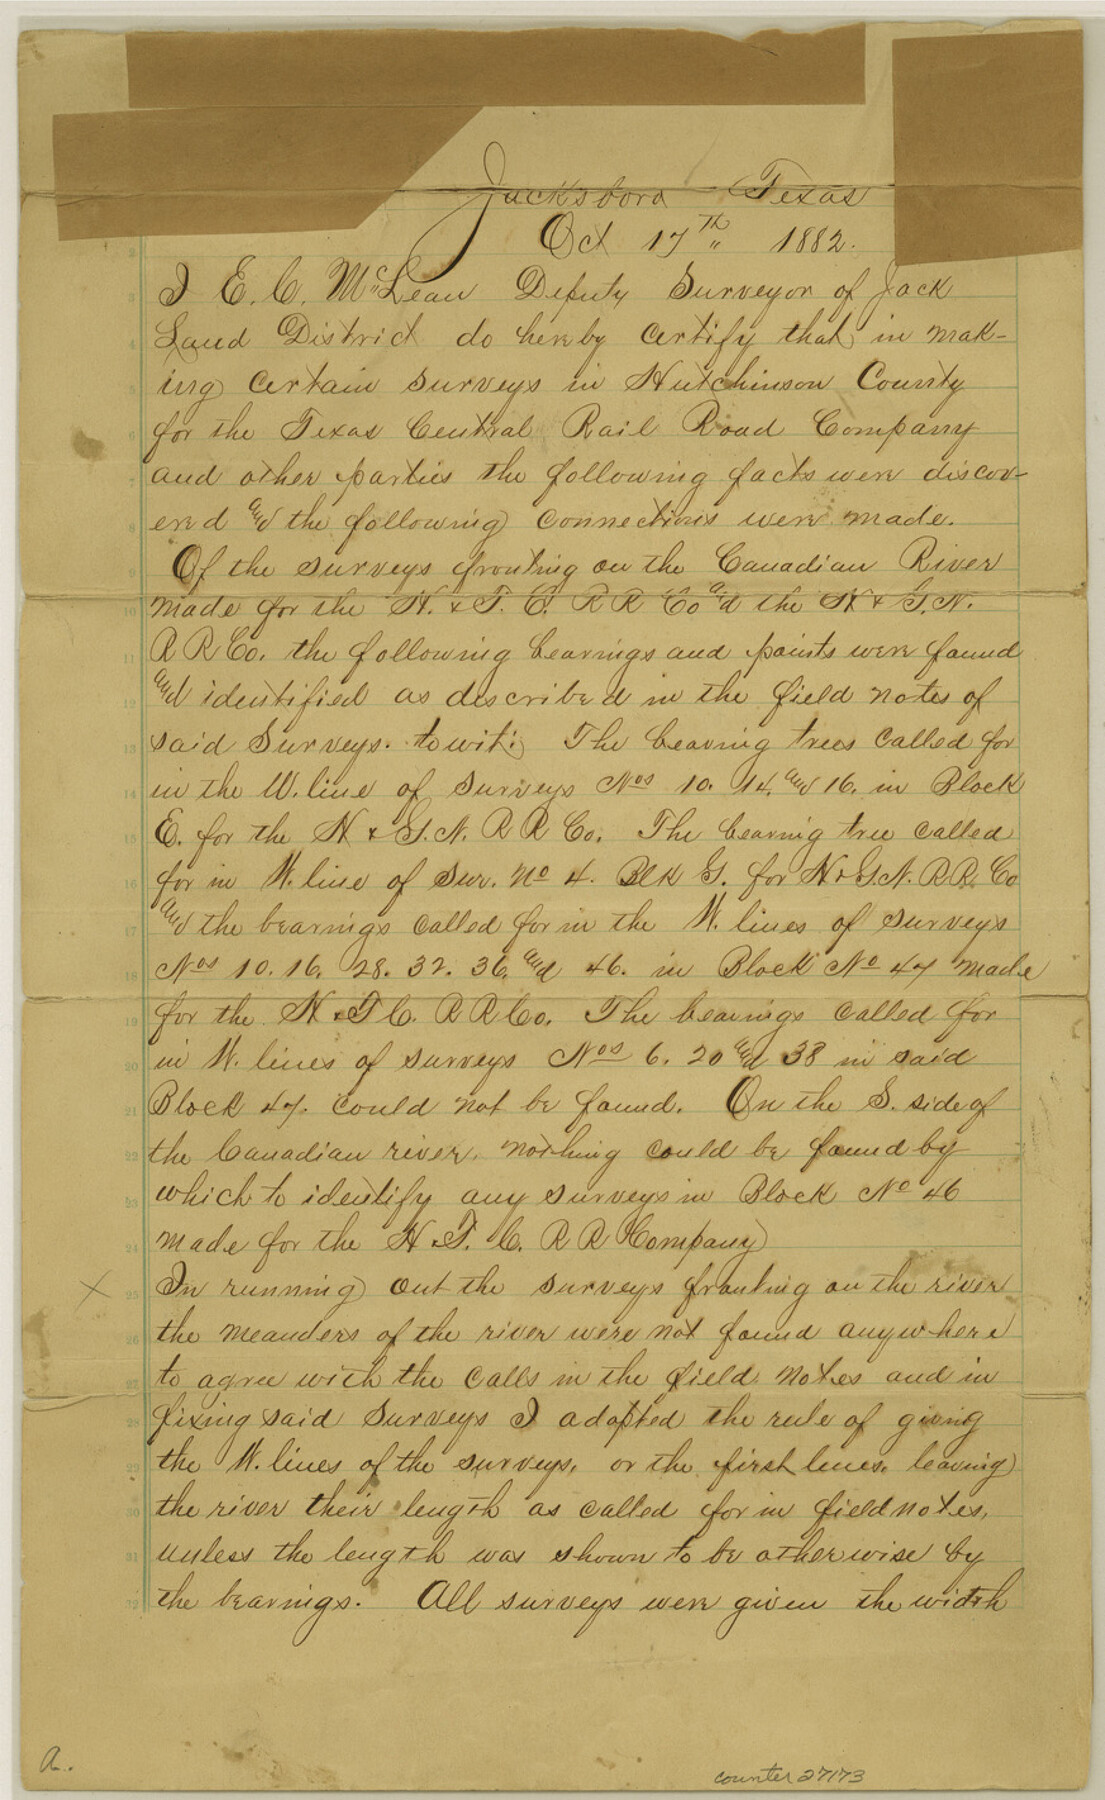 Jacksboro Texas
Oct 17th 1882.
I E. C. McLean Deputy Surveyor of Jack
Land District do hereby certify that in mak-
ing certain surveys in Hutchinson County
for the Texas Central Rail Road Company
and other parties the following facts were discov-
ered and the following connections were made.
Of the surveys fronting on the Canadian River
made for the H. & T. C. R R Co and the H & G. N.
R R Co. the following bearings and points were found
and identified as described in the field notes of
said Surveys. towit: The bearing trees called for
in the W. line of surveys Nos 10. 14. and 16. in Block
E. for the H & G. N. R R Co. The bearing tree called
for in W. line of Sur. No 4. Blk G. for H & G. N. R. R. Co
and the bearings called for in the W. lines of surveys
Nos 10. 16. 28. 32. 36. and 46. in Block No 47 made
for the H & T C. R R Co. The bearings called for
in W. lines of surveys Nos 6. 20 and 38 in said
Block 47. could not be found. On the S. side of
the Canadian river. nothing could be found by
which to identify any surveys in Block No 46
made for the H & T. C. R R Company
X In running out the surveys fronting on the river
the meanders of the river were not found anywhere
to agree with the calls in the field notes and in
fixing said surveys I adopted the rule of giving
the W. lines of the surveys, or the first lines, leaving
the river their length as called for in field notes,
unless the length was shown to be otherwise by
the bearings. All surveys were given the width
A.
counter 27173